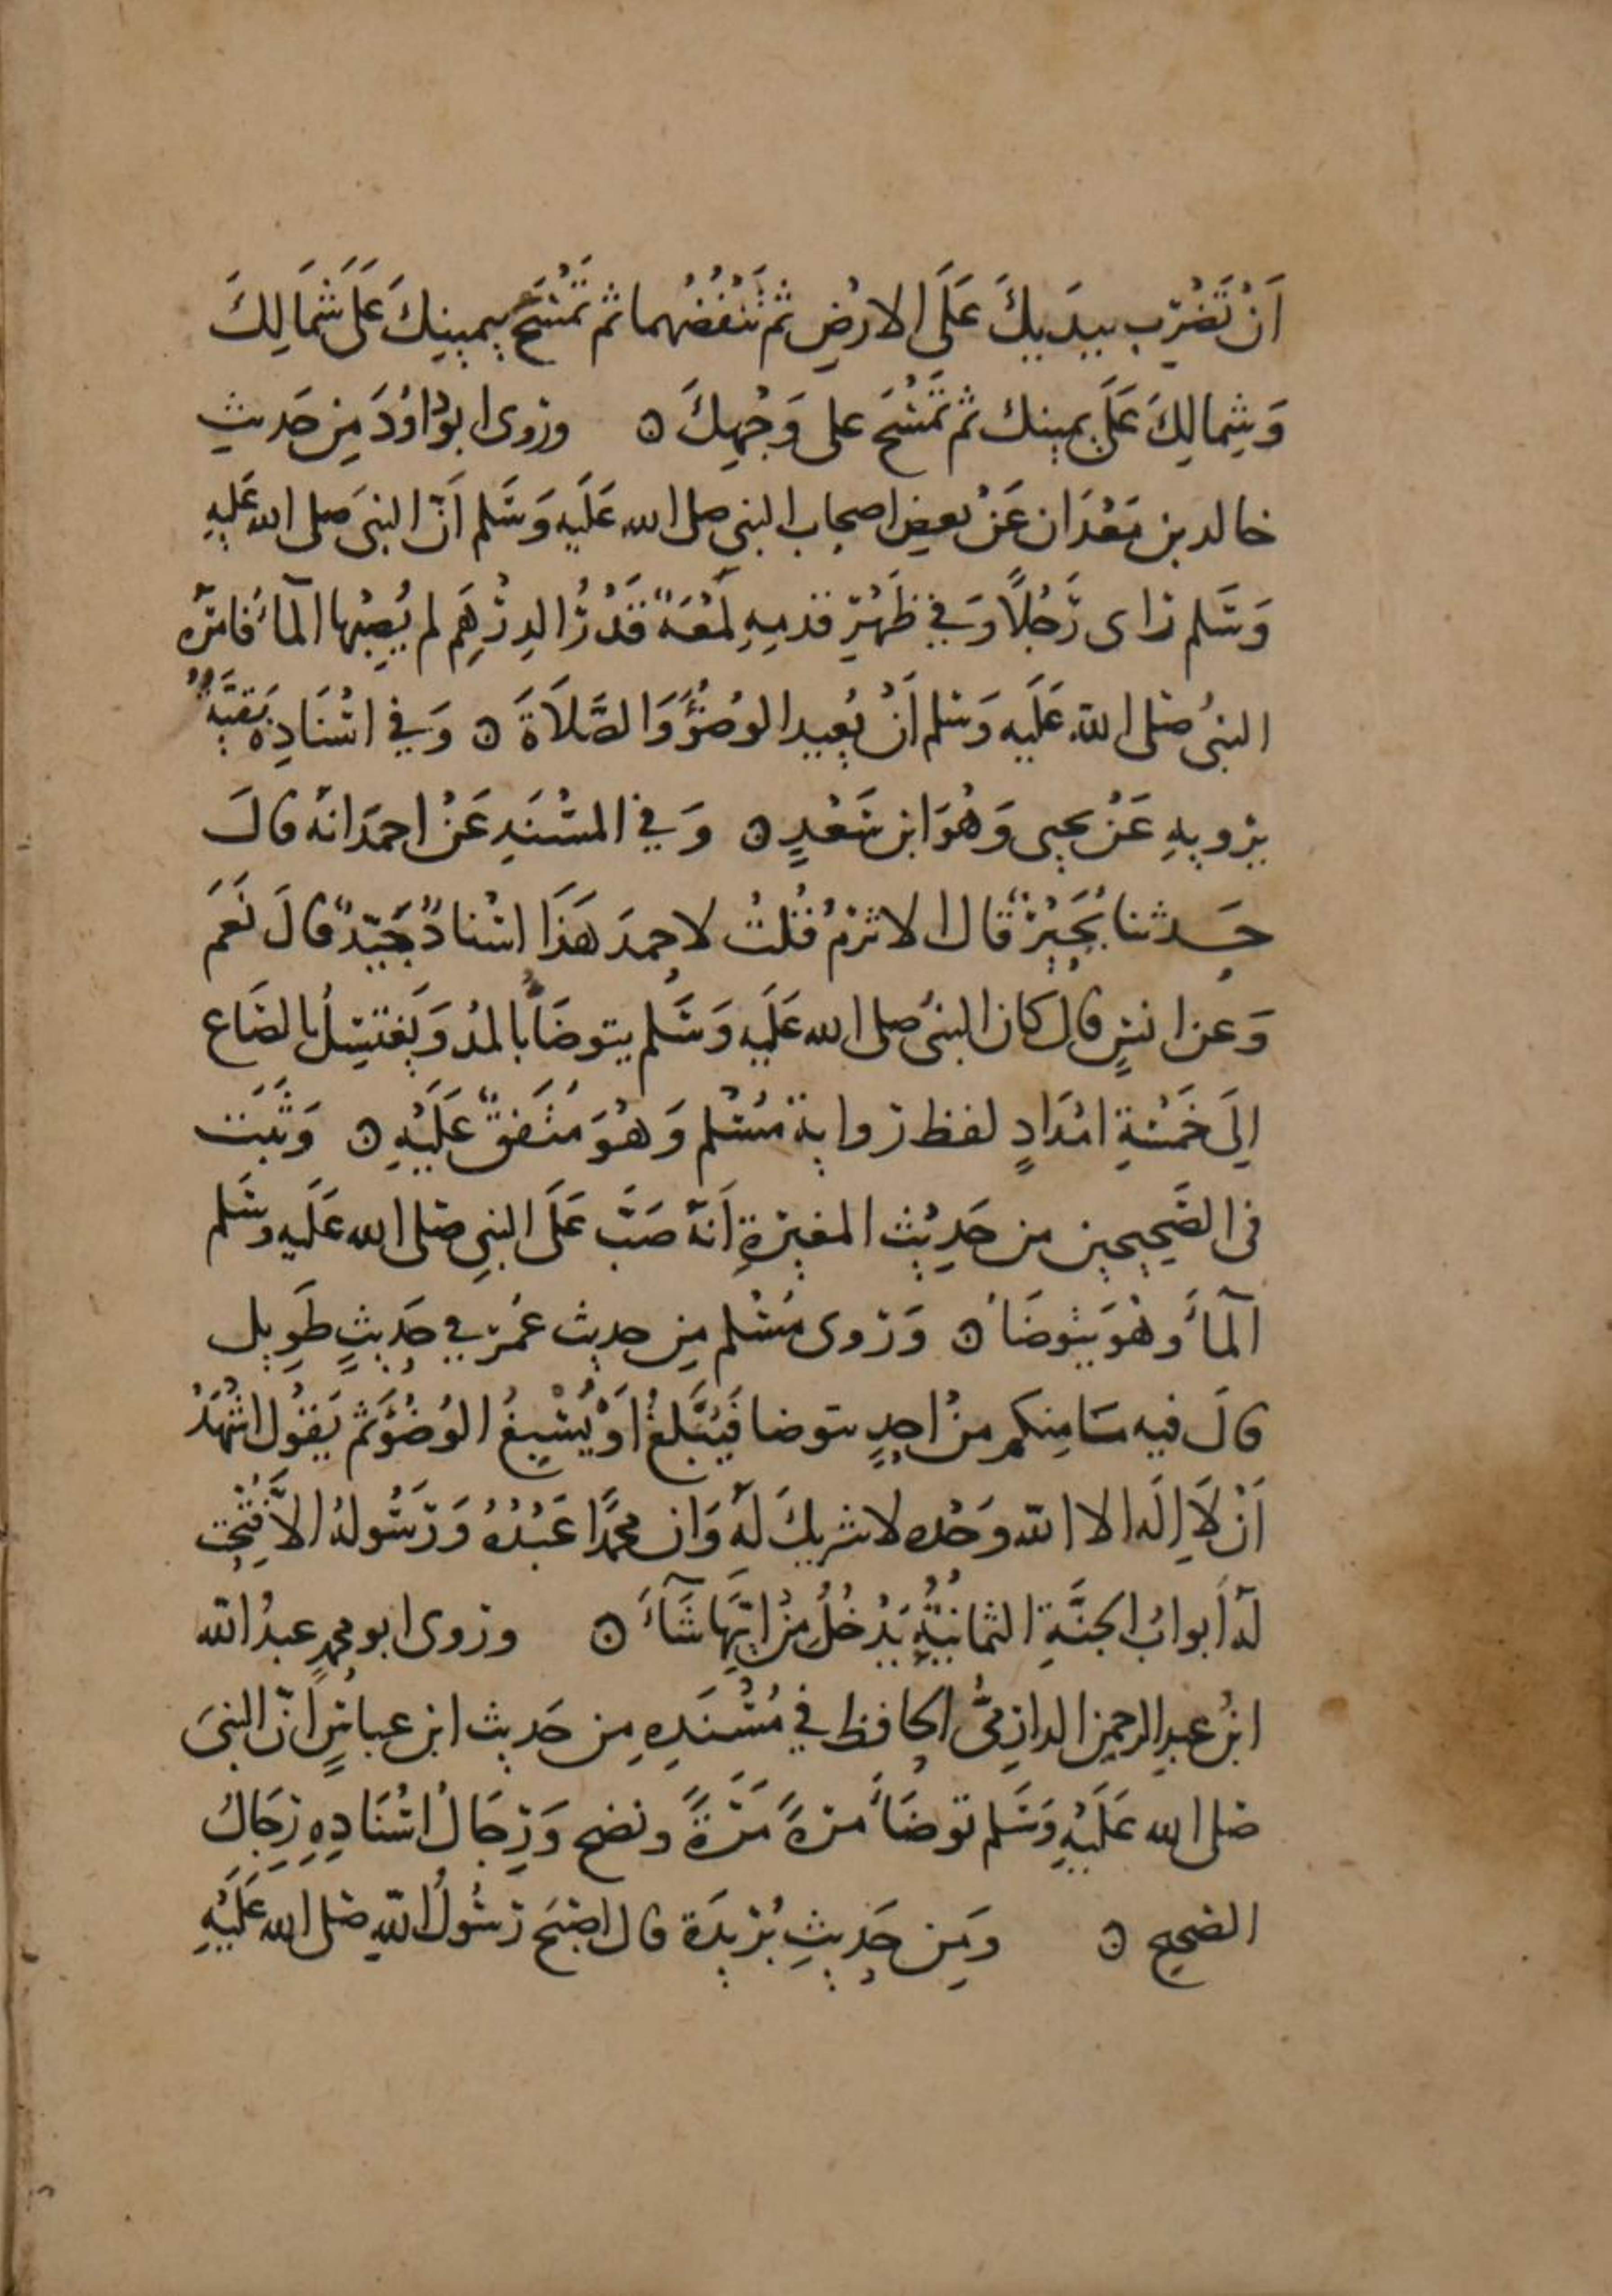 اَنْ تَضْرِب بيدَيكَ عَلَى الارْضِ ثم تَنْفُضُهما ثم تَمْسَحَ بيمينِكَ عَلَى شَمَالِكَ
وَشِمالِكَ عَلَى يمينك ثم تَمْسَحَ على وَجْهِكَ ۞ وروى ابو دَاوُدَ مِن حَديثِ
خالد بن مَعْدَان عَنْ بعضِ اصحاب النبي صلى الله عَلَيهِ وَسَلم اَنّ النبيَ صلى الله عَلَيهِ
وَسَلم راى رَجُلًا وَفي ظَهْرِ قدمِهِ لُمْعَةٌ قَدْرُ الدِرْهَمِ لم يُصِبْها الْمآءُ فامَرَه
النبيُ صلى اللّه عَلَيهِ وَسَلم اَنْ يُعِيد الوُضُؤَ وَالصَّلَاةَ ۞ وَفي اسْنَادِهِ بَقيَّةُ
يرْويهِ عَنْ يحيى وَهُوَ ابن سَعْدٍ ۞ وَفي المسْنَدِ عَنْ احمَدَ انهُ قالَ
حَدثنا بُحَيْرٌ قال الاثرَمُ قُلتُ لاحمدَ هَذَا اسْنادٌ جَيّدٌ قالَ نَعَمَ
وَعن انسٍ قالَ كان النبيُ صلى الله عَلَيهِ وَسَلم يتوضَأُ بالمدُ وَيَغتسِلُ بالصَاع
اِلَى خَمْسَةِ امْدَادٍ لفظ رواية مُسْلم وَهُوَ مُتَفقٌ عَلَيْهِ ۞ وَثَبَت
في الصَّحيحين من حَدِيْث المغيرةِ اَنهُ صَبَّ عَلَى النبيِ صلى الله عَلَيهِ وسَلم
الْمآءَ وهُوَ يتوضَأُ ۞ وَروى مُسْلم مِن حديث عُمَر في حَديثٍ طَوِيل
قالَ فيه مَا مِنكم منْ احدٍ يتوضا فَيُبَلِغُ اَوْ يُسْبِغُ الوُضُؤَ ثم يَقُول اشْهَدُ
اَنْ لَا اِلَه الا اللّه وَحْده لا شريكَ لَهُ وَان محمدًا عَبْدُهُ وَرَسُولهُ الاَّ فُتِحَت
لَهُ اَبوابُ الجنَّةِ الثمانيَةُ يَدْخُلُ مِنْ ايّهَا شَآءَ ۞ وروى ابو محمدٍ عبدُ اللّه
ابنُ عبدِ الرحمن الدارميُّ الحافظ في مُسْنَدِهِ مِن حَديث ابن عباسٍ اَنّ النبيَ
صلى الله عَلَيْهِ وَسَلم توضَأَ مرةً مَرةً ونضح وَرِجَالُ اسْنَادِهِ رِجَالُ
الصَحيح ۞ وَمِن حَدِيثِ بُريدَةَ قال اصْبَحَ رَسُولُ اللّهِ صَلى الله عَلَيْهِ